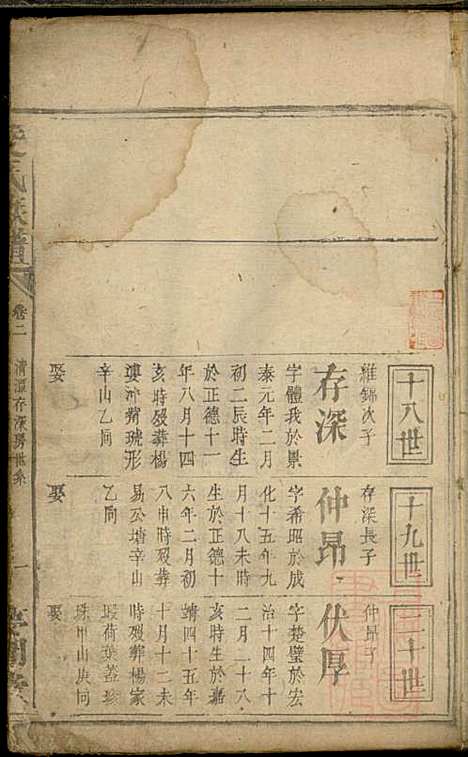 十八世
維錦次子
存深
字體我於景
泰元年二月
初二辰時生
於正德十一
年八月十四
亥時殁葬楊
婆沖蘭琥形
辛山乙向
娶
十九世
存深長子
仲昂
字希昭於成
化十五年九
月十八未時
生於正德十
六年二月初
八申時殁葬
易公塘辛山
乙向
娶
二十世
仲昂子
伏厚
字楚璧於宏
治十四年十
二月二十八
亥時生於嘉
靖四十五年
十月十二未
時殁葬楊家
塅荷葉蓋珍
珠甲山庚向
娶
氏族譜
卷二
清潭存深房世系
一